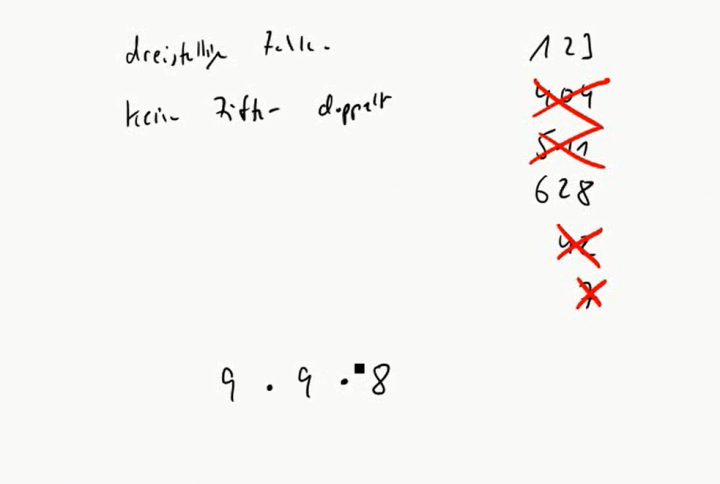 dreistellige Zahlen
kein Ziffer doppelt
123
404
511
628
42
7
9 · 9 · 8